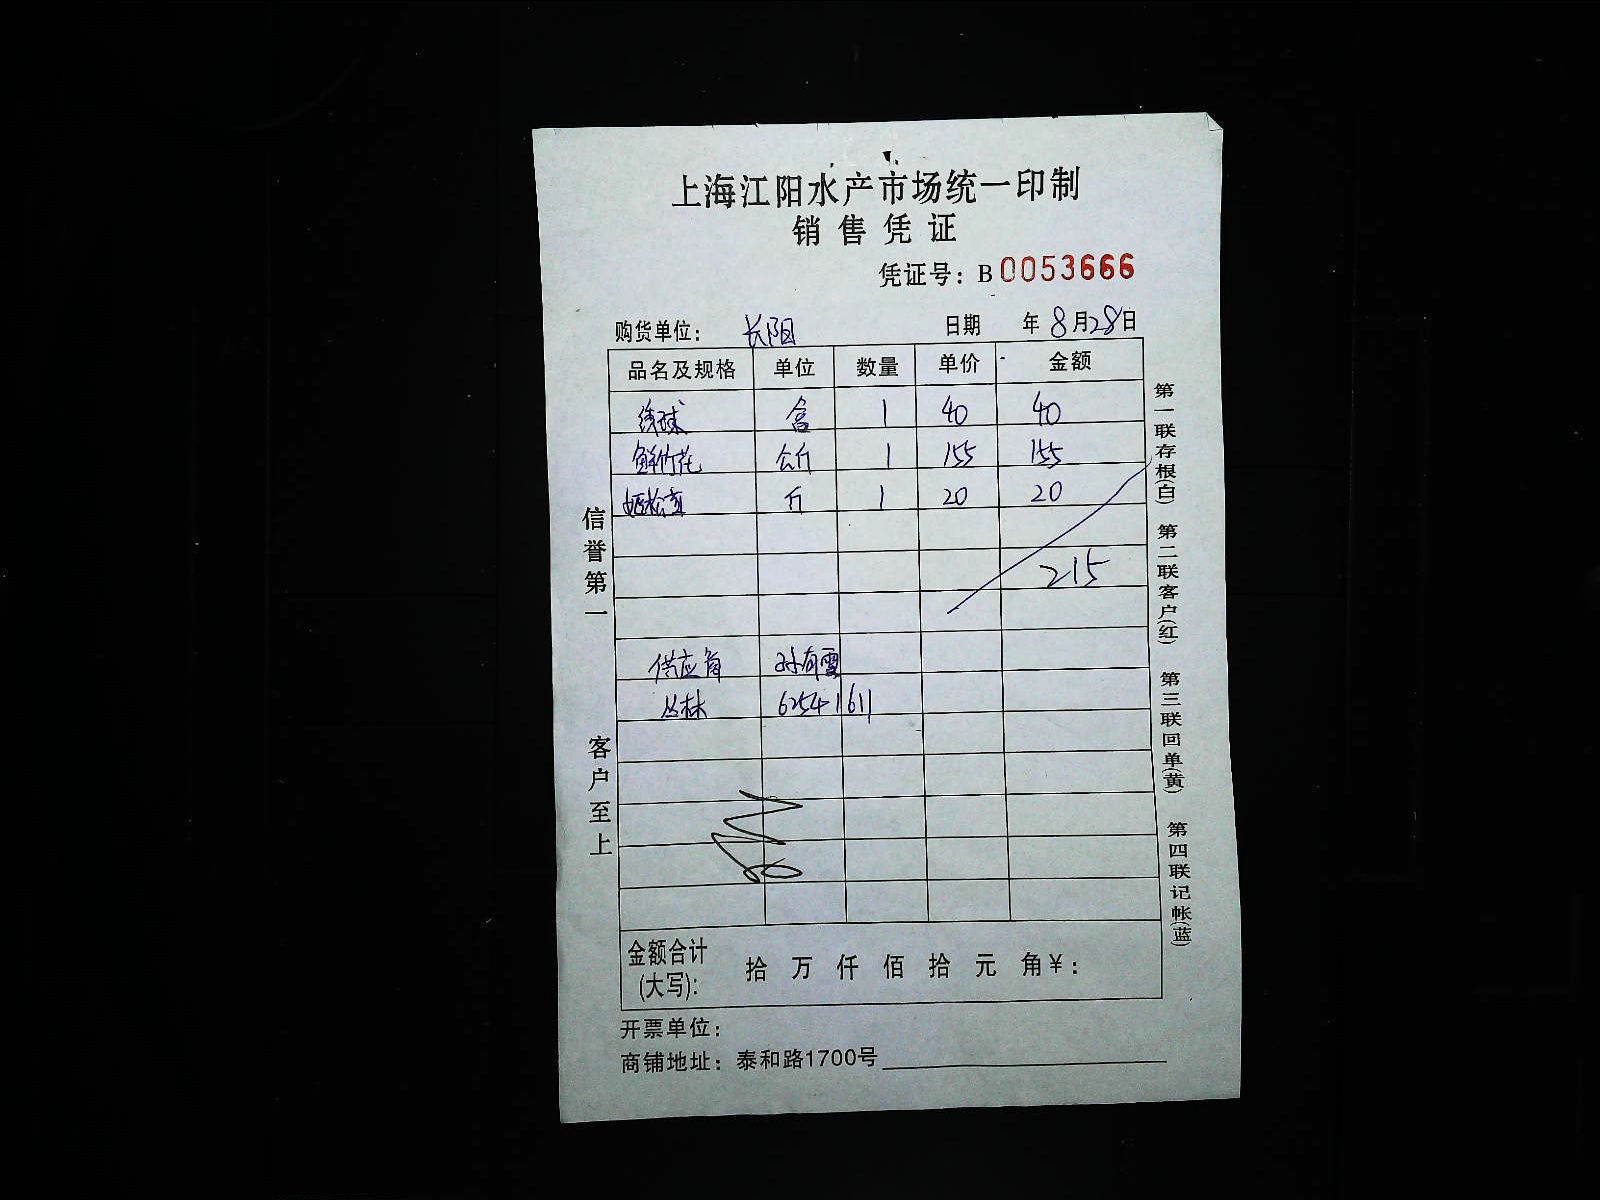 上海江阳水产市场统一印制
销售凭证
凭证号：B 0053666
购货单位：长阳 日期 年8月28日
品名及规格 单位 数量 单价 金额
绣球 盒 1 40 40
鲜竹花 公斤 1 155 155
姬松茸 斤 1 20 20
215
供应商
丛林 62541611
金额合计 拾 万 仟 佰 拾 元 角￥：
(大写)：
开票单位：
商铺地址：泰和路1700号
信誉第一
客户至上
第一联存根(白) 第二联客户(红) 第三联回单(黄) 第四联记帐(蓝)